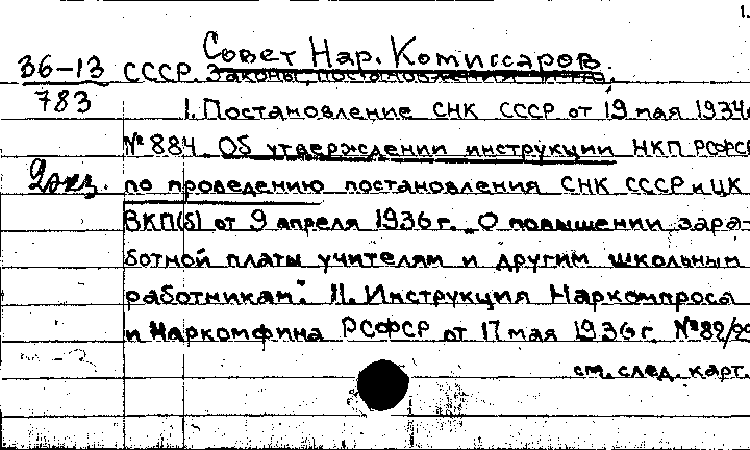 1.
Совет Нар. Комиссаров.
36-13 СССР. Законы, постановления и т.д.
783 I. Постановление СНК СССР от 19 мая 1934г
№ 884 Об утверждении инструкции НКП РСФСР
2 экз. по проведению постановления СНК СССР и ЦК
ВКП(б) от 9 апреля 1936 г. „О повышении зара-
ботной платы учителям и другим школьным
работникам". II. Инструкция Наркомпроса
и Наркомфина РСФСР от 17 мая 1936 г. №82/20
см. след. карт.